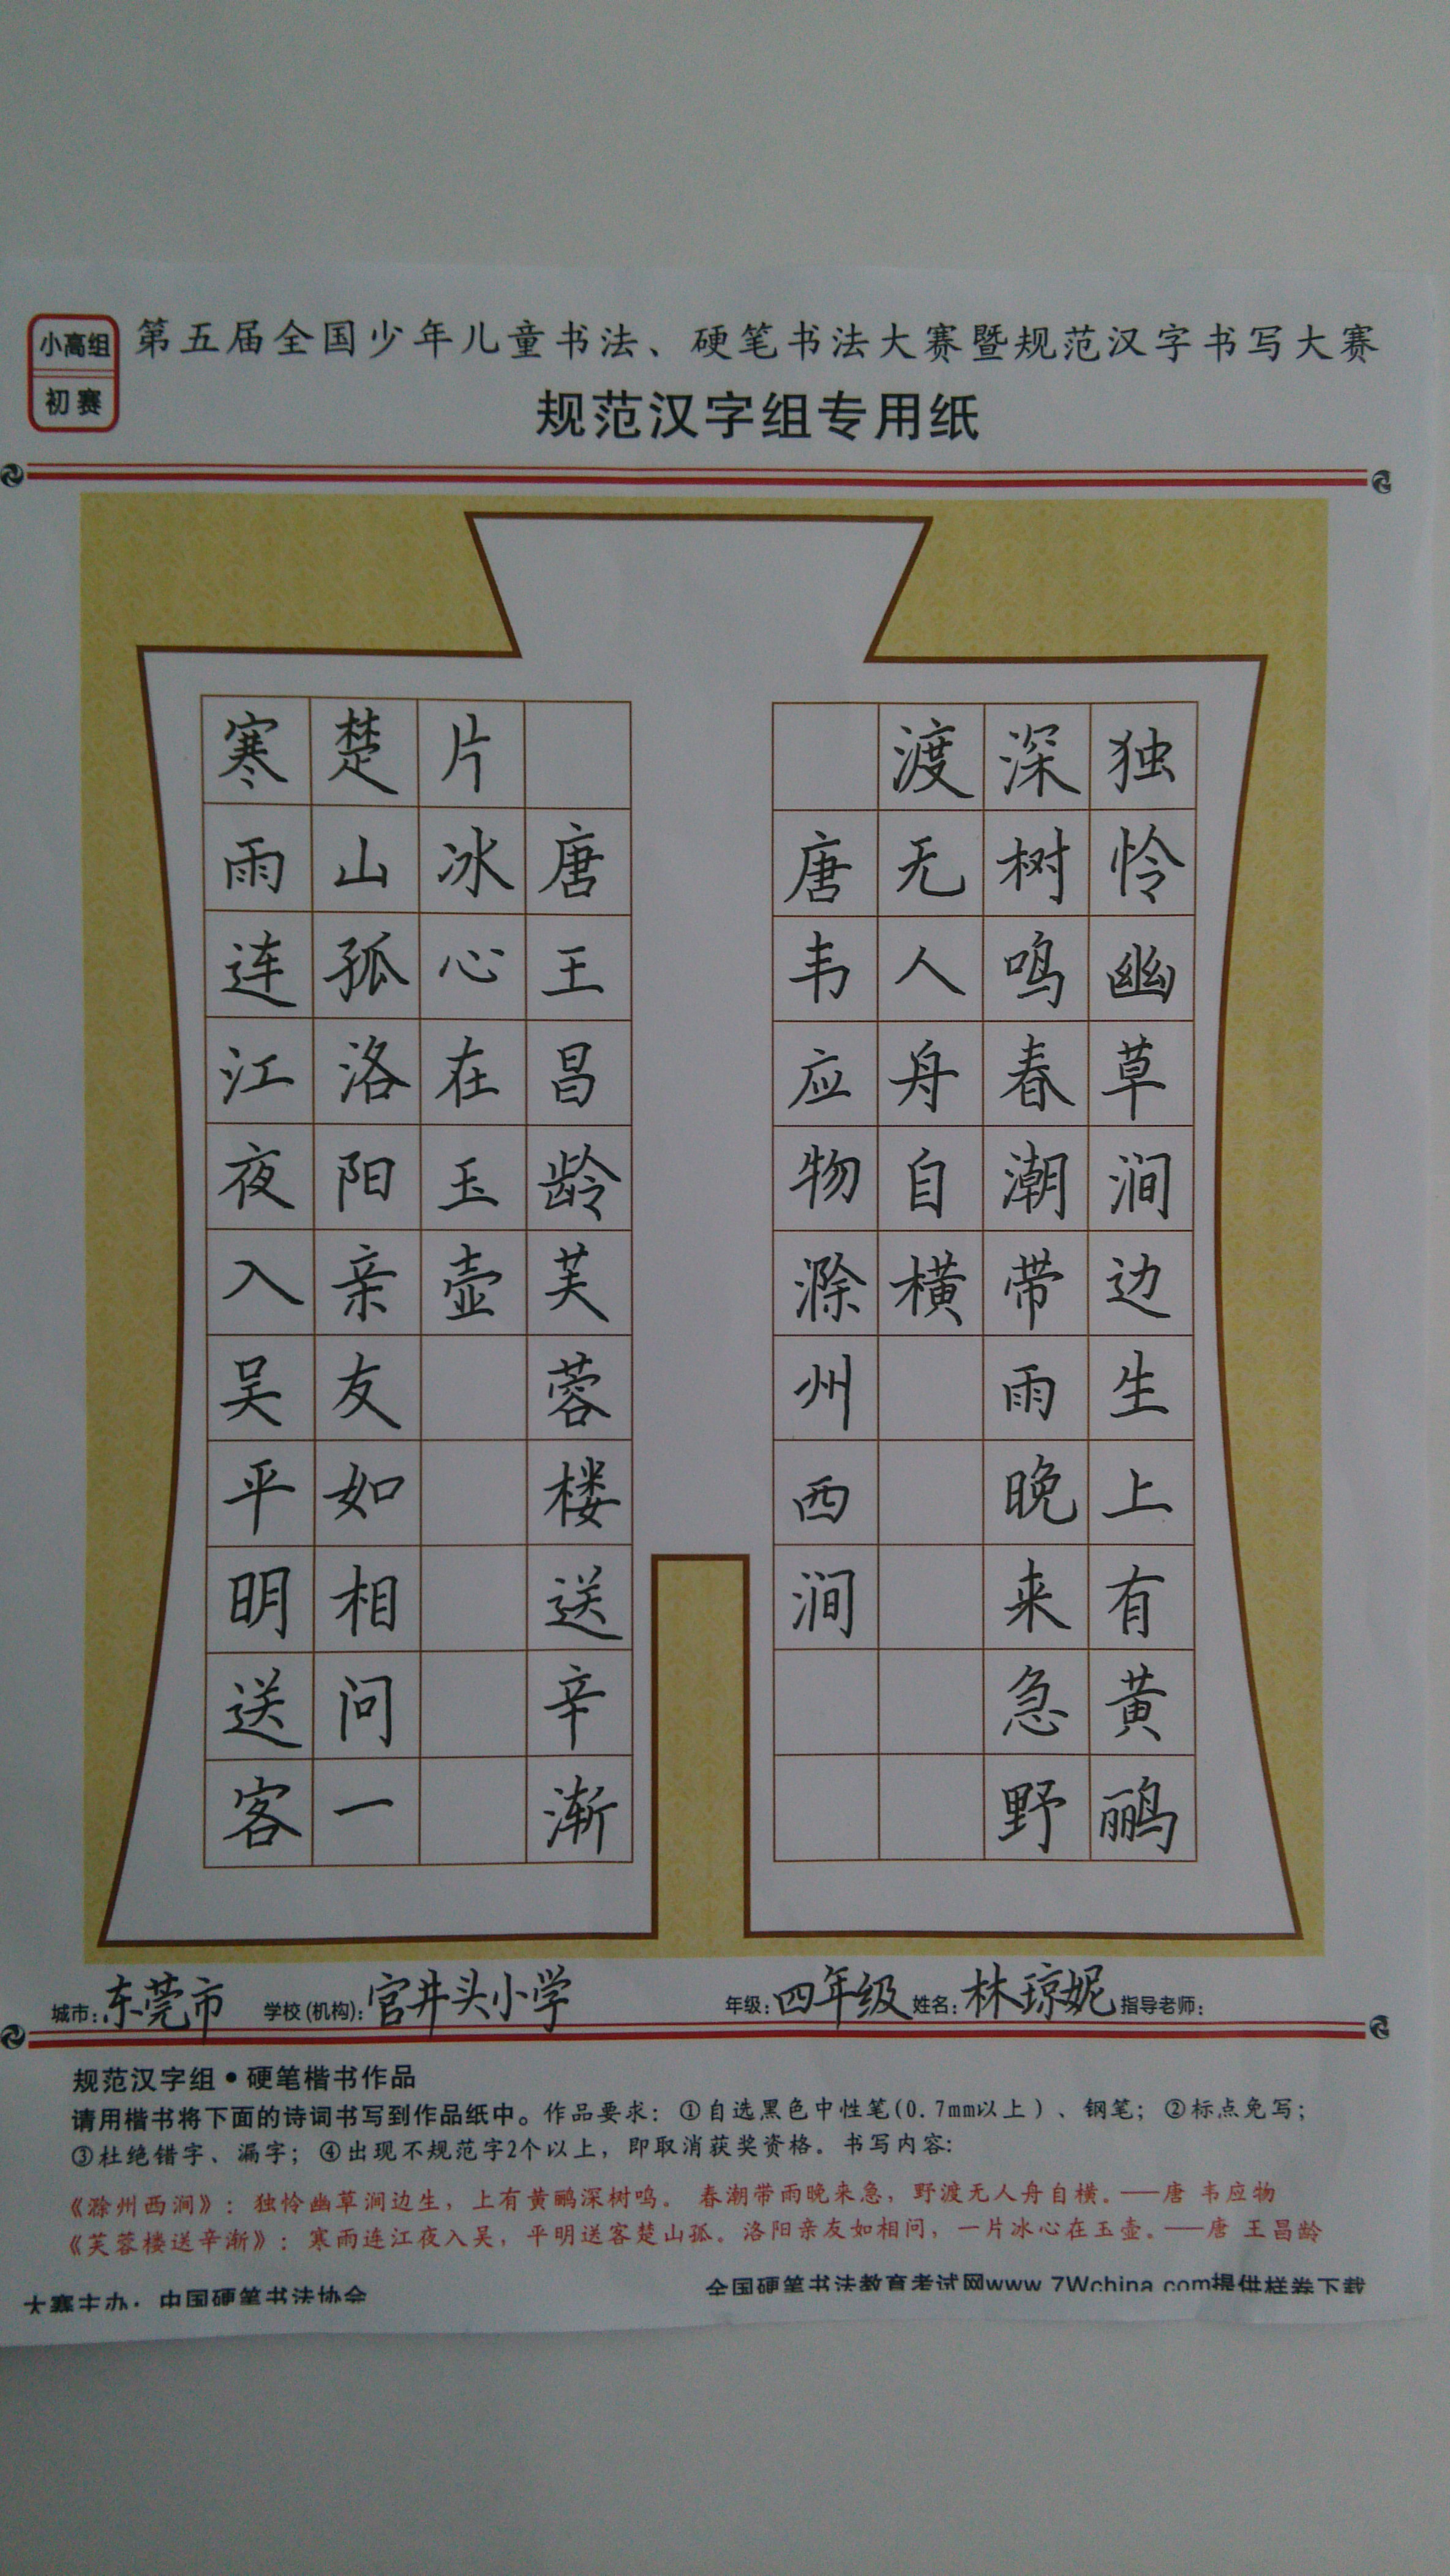 小高组
初赛
第五届全国少年儿童书法、硬笔书法大赛暨规范汉字书写大赛
规范汉字组专用纸
独怜幽草涧边生上有黄鹂
深树鸣春潮带雨晚来急野
渡无人舟自横
唐韦应物滁州西涧
寒雨连江夜入吴平明送客
楚山孤洛阳亲友如相问一
片冰心在玉壶
唐王昌龄芙蓉楼送辛渐
城市：东莞市 学校(机构)：官井头小学 年级：四年级 姓名：林琼妮 指导老师：
规范汉字组•硬笔楷书作品
请用楷书将下面的诗词书写到作品纸中。作品要求：①自选黑色中性笔(0.7mm以上)、钢笔；②标点免写；
③杜绝错字、漏字；④出现不规范字2个以上，即取消获奖资格。书写内容：
《滁州西涧》：独怜幽草涧边生，上有黄鹂深树鸣。春潮带雨晚来急，野渡无人舟自横。——唐 韦应物
《芙蓉楼送辛渐》：寒雨连江夜入吴，平明送客楚山孤。洛阳亲友如相问，一片冰心在玉壶。——唐 王昌龄
大赛主办：中国硬笔书法协会 全国硬笔书法教育考试网www.7Wchina.com提供样卷下载